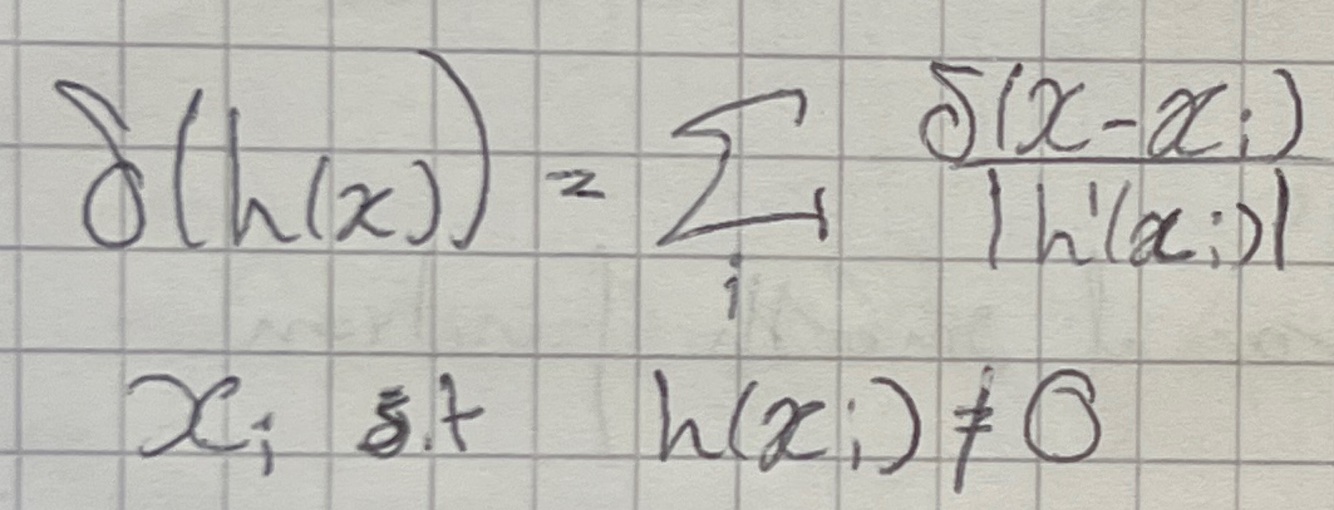 δ(h(x)) = Σ_i δ(x-x_i)/|h'(x_i)|
x_i s.t h(x_i) ≠ 0